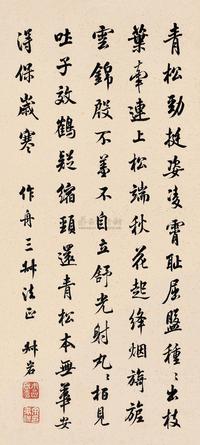 青松勁挺姿凌霄恥屈盤種〻出枝
葉牽連上松端秋花起絳烟旖旎
雲錦殷不羞不自立舒光射丸〻柏見
吐子效鶴疑縮頸還青松本無華安
得保歲寒 作舟三叔法正 叔岩